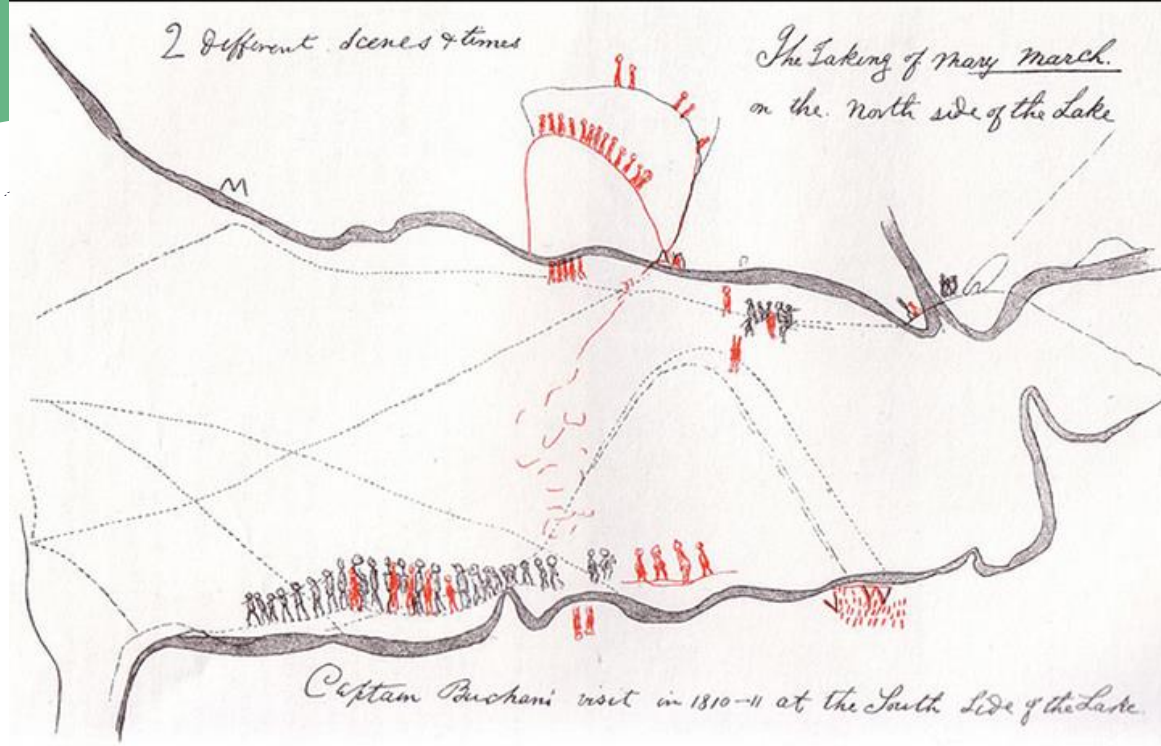 2 Different Scenes & times
The Taking of Mary March.
on the. North side of the Lake
Captain Buchans visit in 1810-11 at the South Side of the Lake.